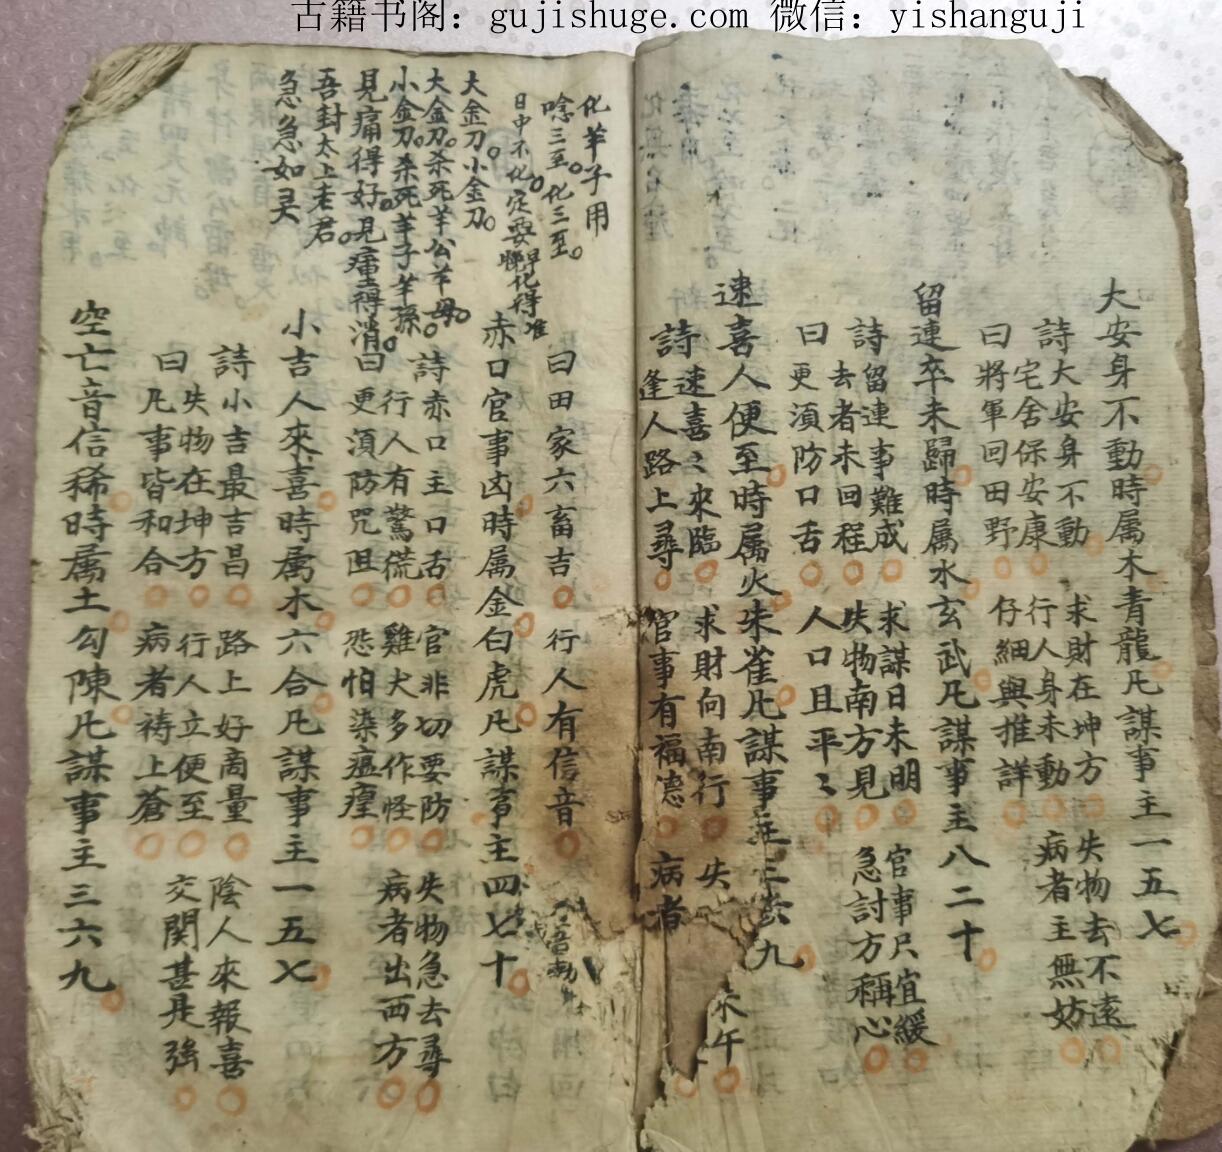 古籍书阁：gujishuge.com 微信：yishanguji
大安身不動時属木青龍凡謀事主一五七
詩大安身不動 求財在坤方 失物去不遠
宅舍保安康 行人身未動 病者主無妨
曰將軍回田野 仔細與推詳
留連卒未歸時属水玄武凡謀事主八二十
詩留連事難成 求謀日未明 官事只宜緩
去者未回程 失物南方見 急討方稱心
曰更湏防口舌 人口且平〻
速喜人便至時属火朱雀凡謀事主三六九
詩速喜〻來臨 求財向南行 失 未午
逢人路上尋 官事有福德 病者
曰田家六畜吉 行人有信音
化羊子用
唸三至化三至
日中不化定要早化得准
大金刀小金刀
大金刀杀死羊公羊母
小金刀杀死羊子羊孫
見痛得好見癀得消
吾封太上老君
急急如灵
赤口官事凶時属金白虎凡謀事主四七十
詩赤口主口舌 官非切要防 失物急去尋
行人有驚慌 雞犬多作怪 病者出西方
曰更湏防咒咀 恐怕染瘟瘴
小吉人來喜時属木六合凡謀事主一五七
詩小吉最吉昌 路上好商量 陰人來報喜
失物在坤方 行人立便至 交関甚是強
曰凡事皆和合 病者祷上蒼
空亡音信稀時属土勾陳凡謀事主三六九